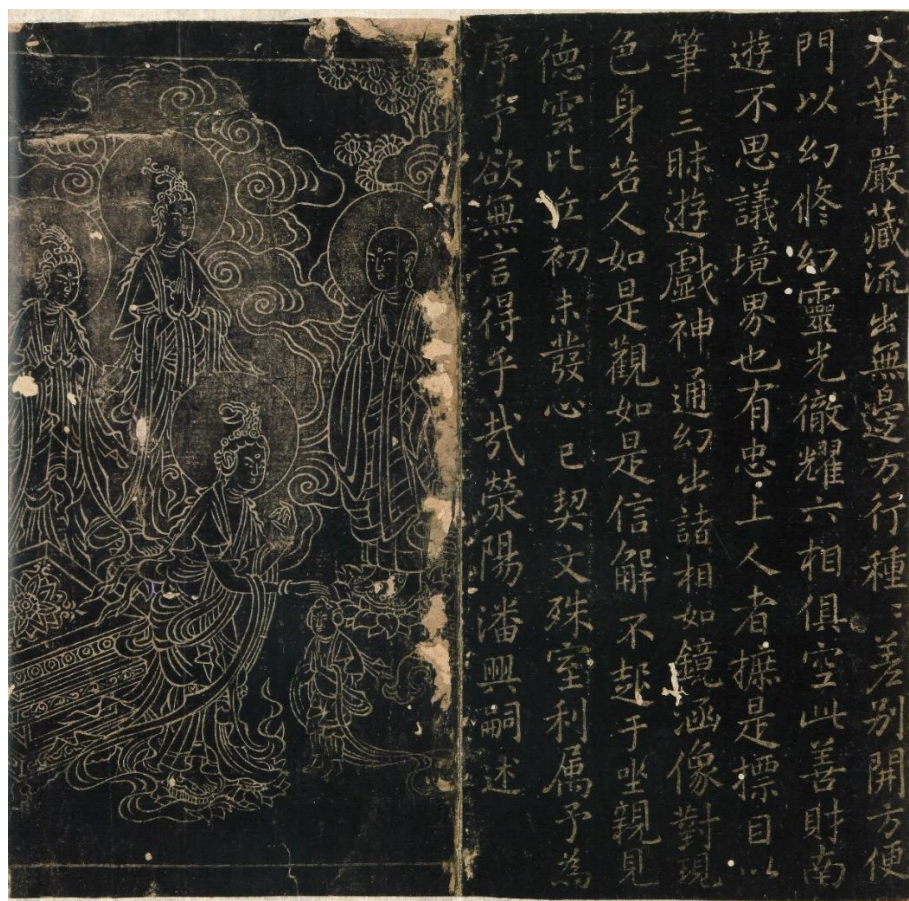 大華嚴藏流出無邊万行種〻差別開方便
門以幻脩幻靈光徹耀六相俱空此善財南
遊不思議境界也有忠上人者摭是標目以
筆三昧遊戲神通幻出諸相如鏡涵像對現
色身若人如是觀如是信解不起于坐親見
德雲比丘初未發心已契文殊室利属予為
序予欲無言得乎哉滎陽潘興嗣述